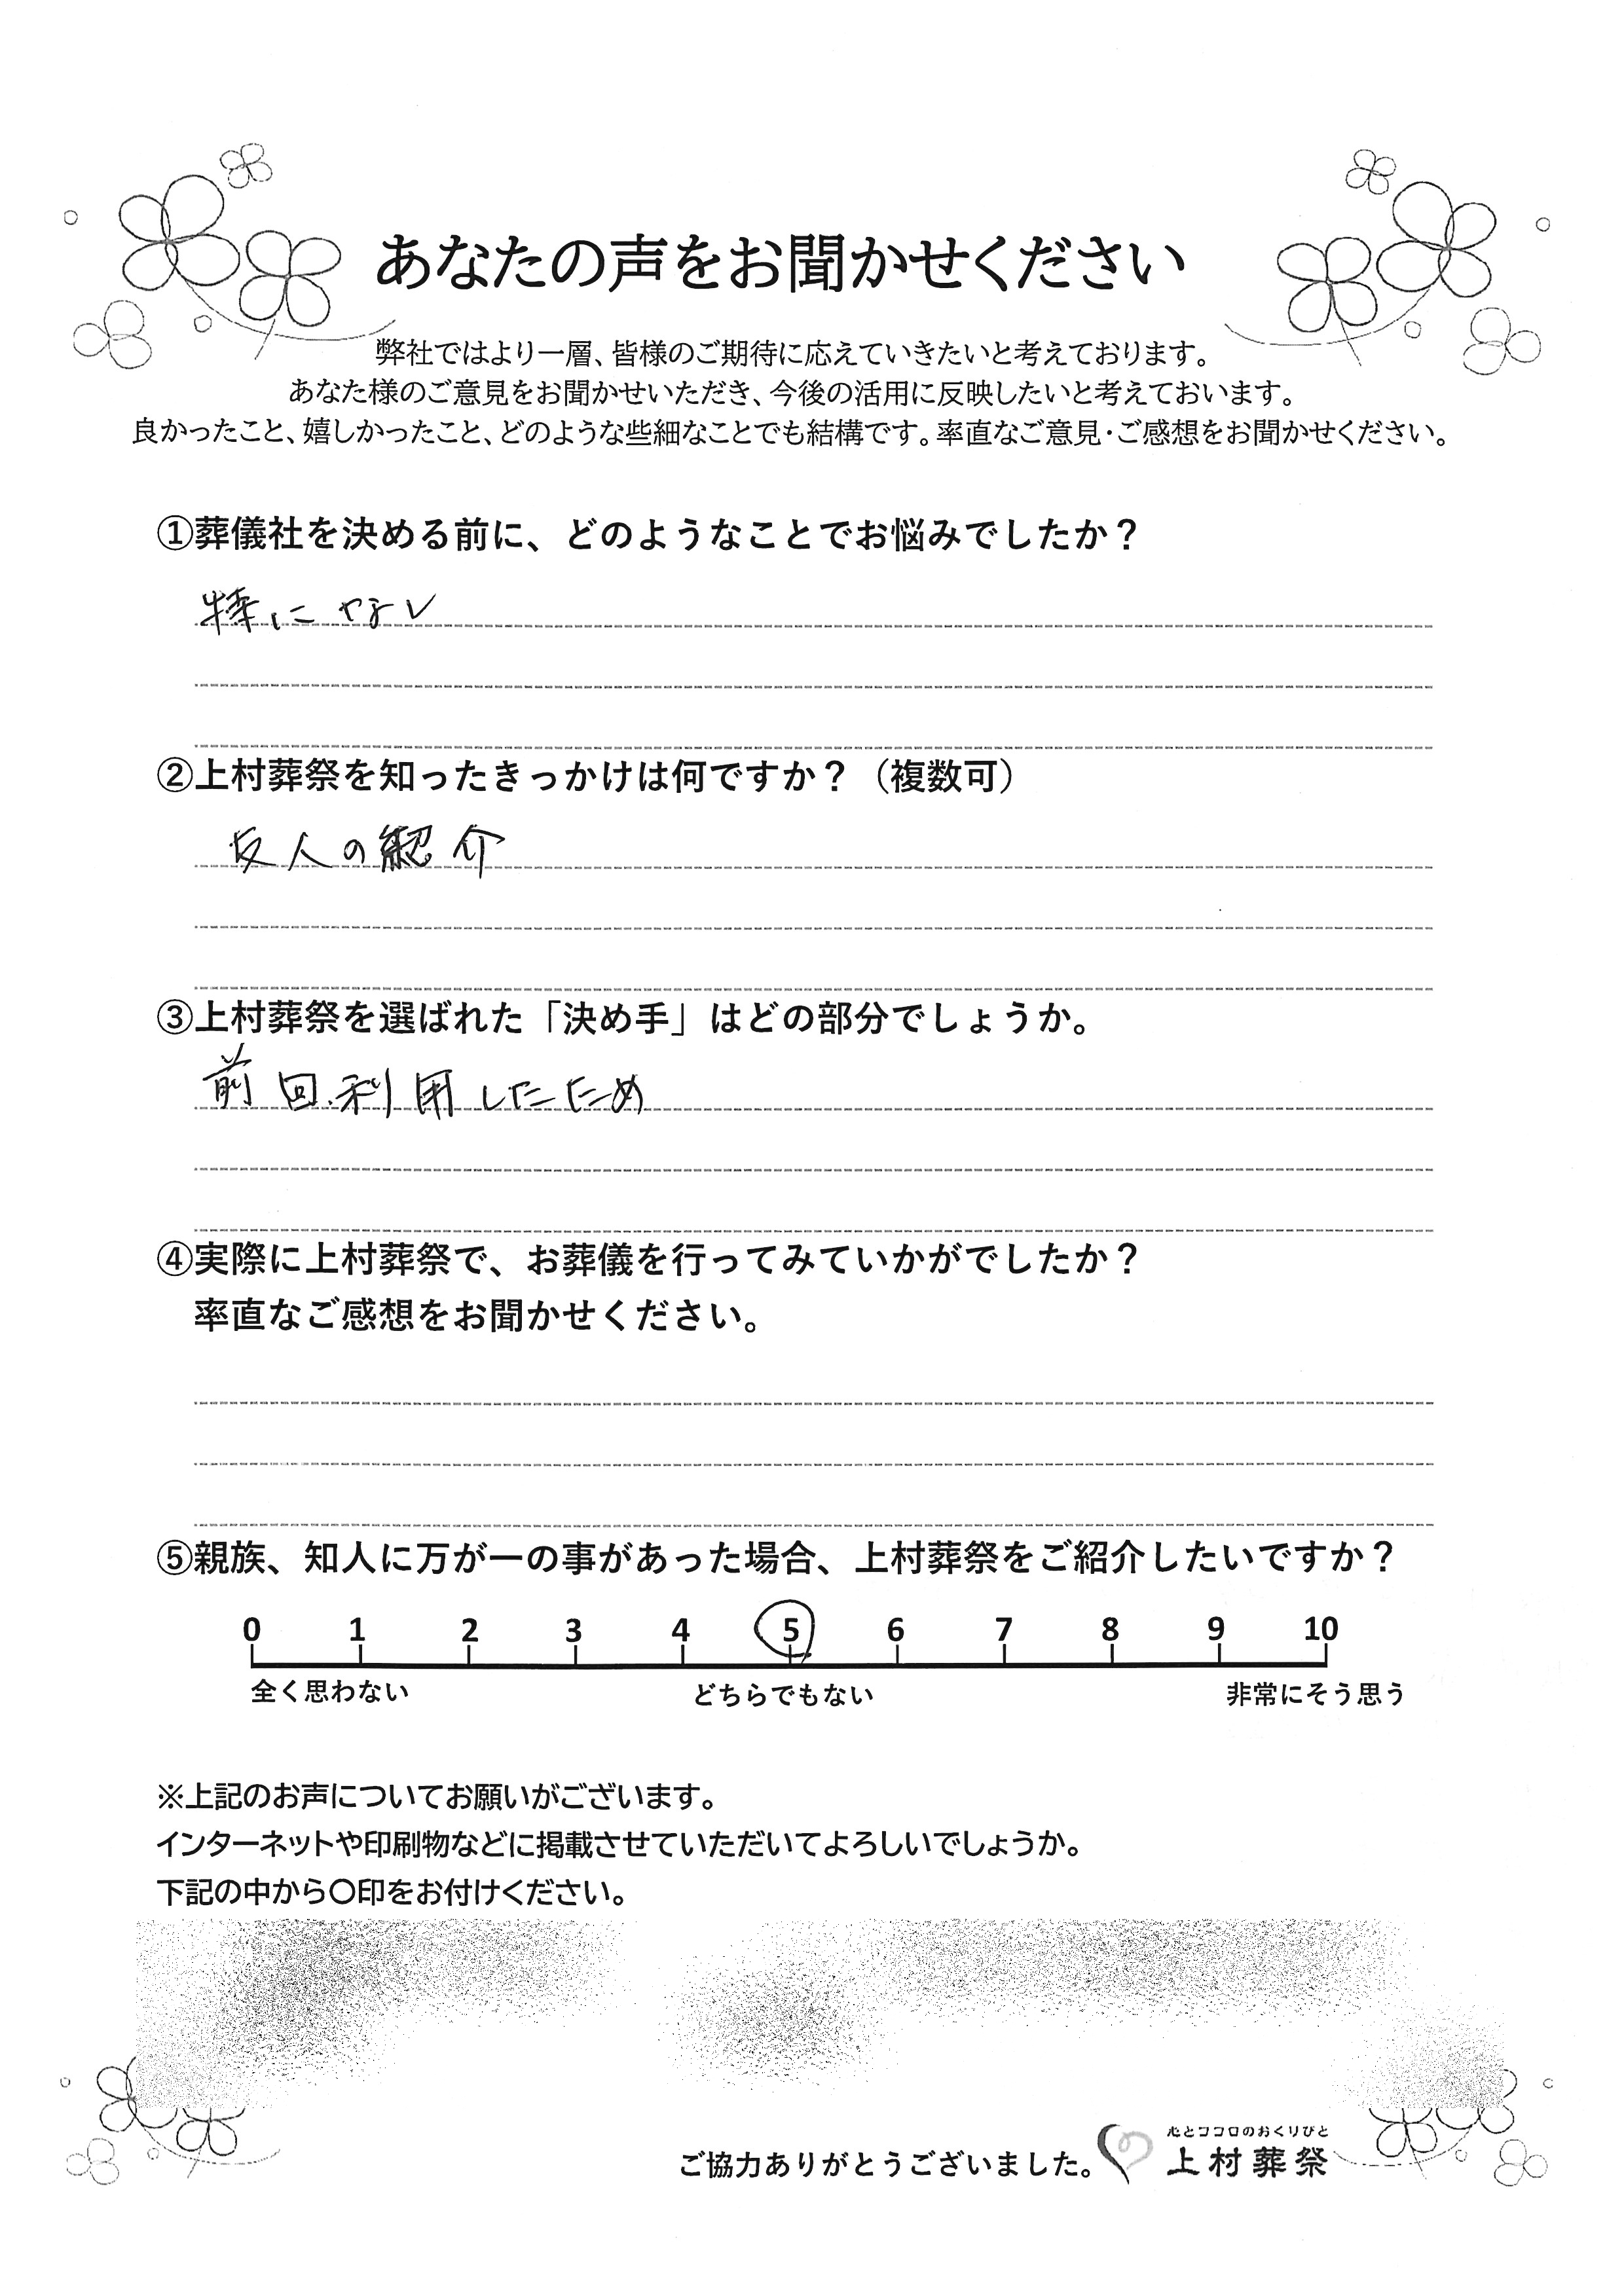 あなたの声をお聞かせください
弊社ではより一層、皆様のご期待に応えていきたいと考えております。
あなた様のご意見をお聞かせいただき、今後の活用に反映したいと考えておいます。
良かったこと、嬉しかったこと、どのような些細なことでも結構です。率直なご意見・ご感想をお聞かせください。
①葬儀社を決める前に、どのようなことでお悩みでしたか？
特になし
②上村葬祭を知ったきっかけは何ですか？（複数可）
友人の紹介
③上村葬祭を選ばれた「決め手」はどの部分でしょうか。
前回利用したため
④実際に上村葬祭で、お葬儀を行ってみていかがでしたか？
率直なご感想をお聞かせください。
⑤親族、知人に万が一の事があった場合、上村葬祭をご紹介したいですか？
0 1 2 3 4 5 6 7 8 9 10
全く思わない どちらでもない 非常にそう思う
※上記のお声についてお願いがございます。
インターネットや印刷物などに掲載させていただいてよろしいでしょうか。
下記の中から〇印をお付けください。
心とココロのおくりびと
ご協力ありがとうございました。 上村葬祭